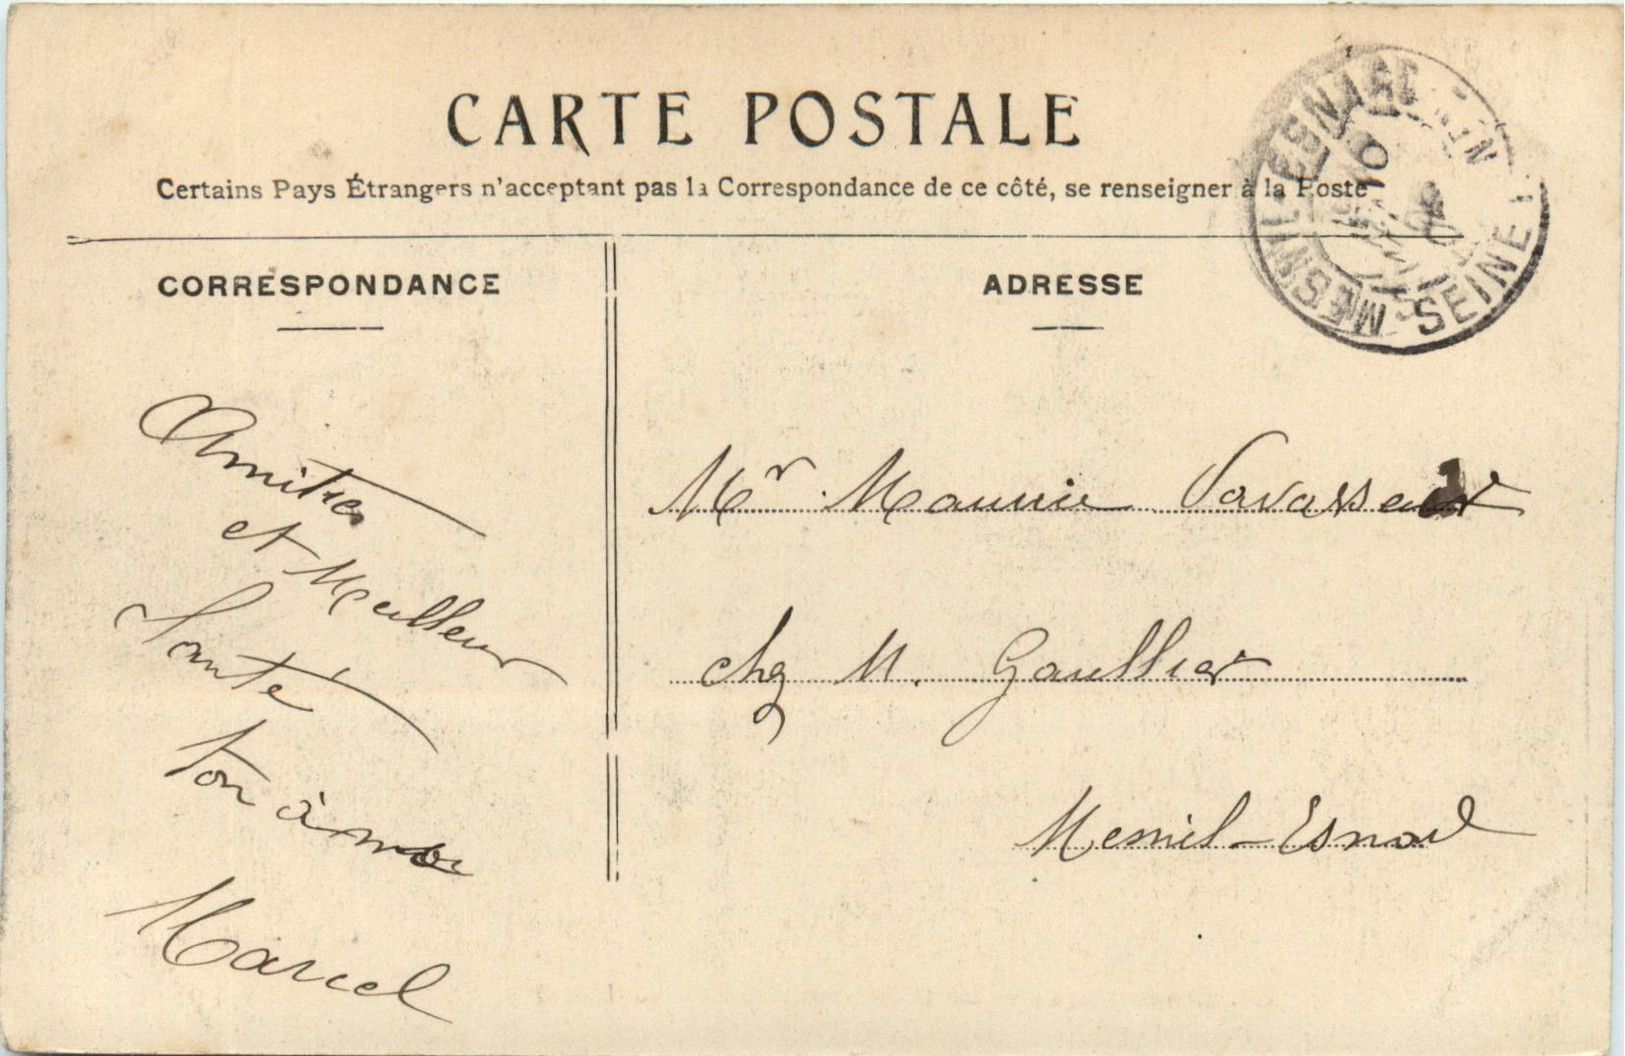 CARTE POSTALE
Certains Pays Étrangers n'acceptant pas la Correspondance de ce côté, se renseigner à la Poste
CORRESPONDANCE
Amities
et Meilleur
Santé
ton à moi
Marcel
ADRESSE
Mr. Maurice Vavasseur
chez M. Gaullier
Mesnil-Esnard
MESNIL-ESNARD
SEINE